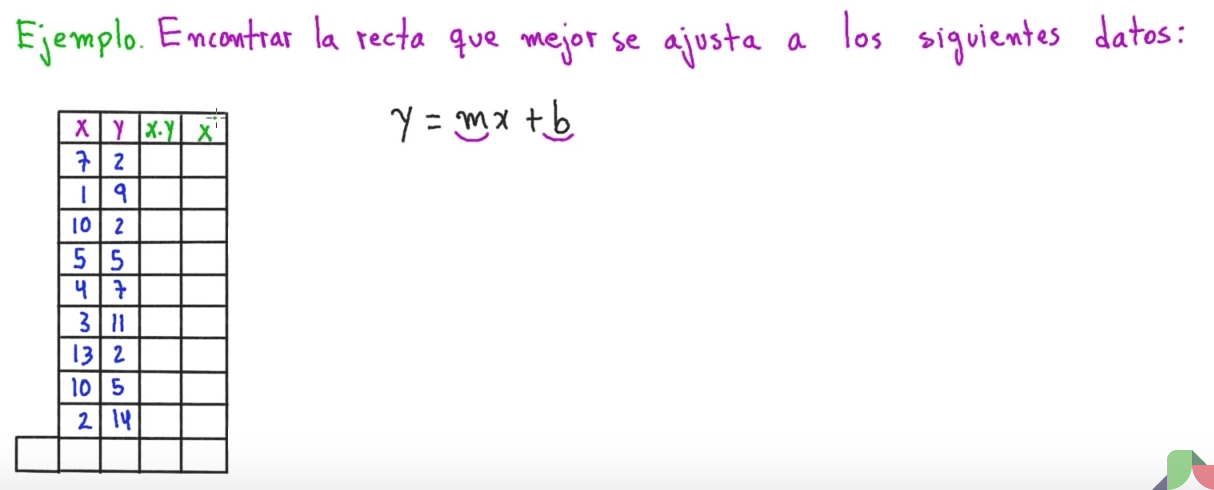 Ejemplo. Encontrar la recta que mejor se ajusta a los siguientes datos:
y = mx + b
X Y X·Y X
7 2
1 9
10 2
5 5
4 7
3 11
13 2
10 5
2 14